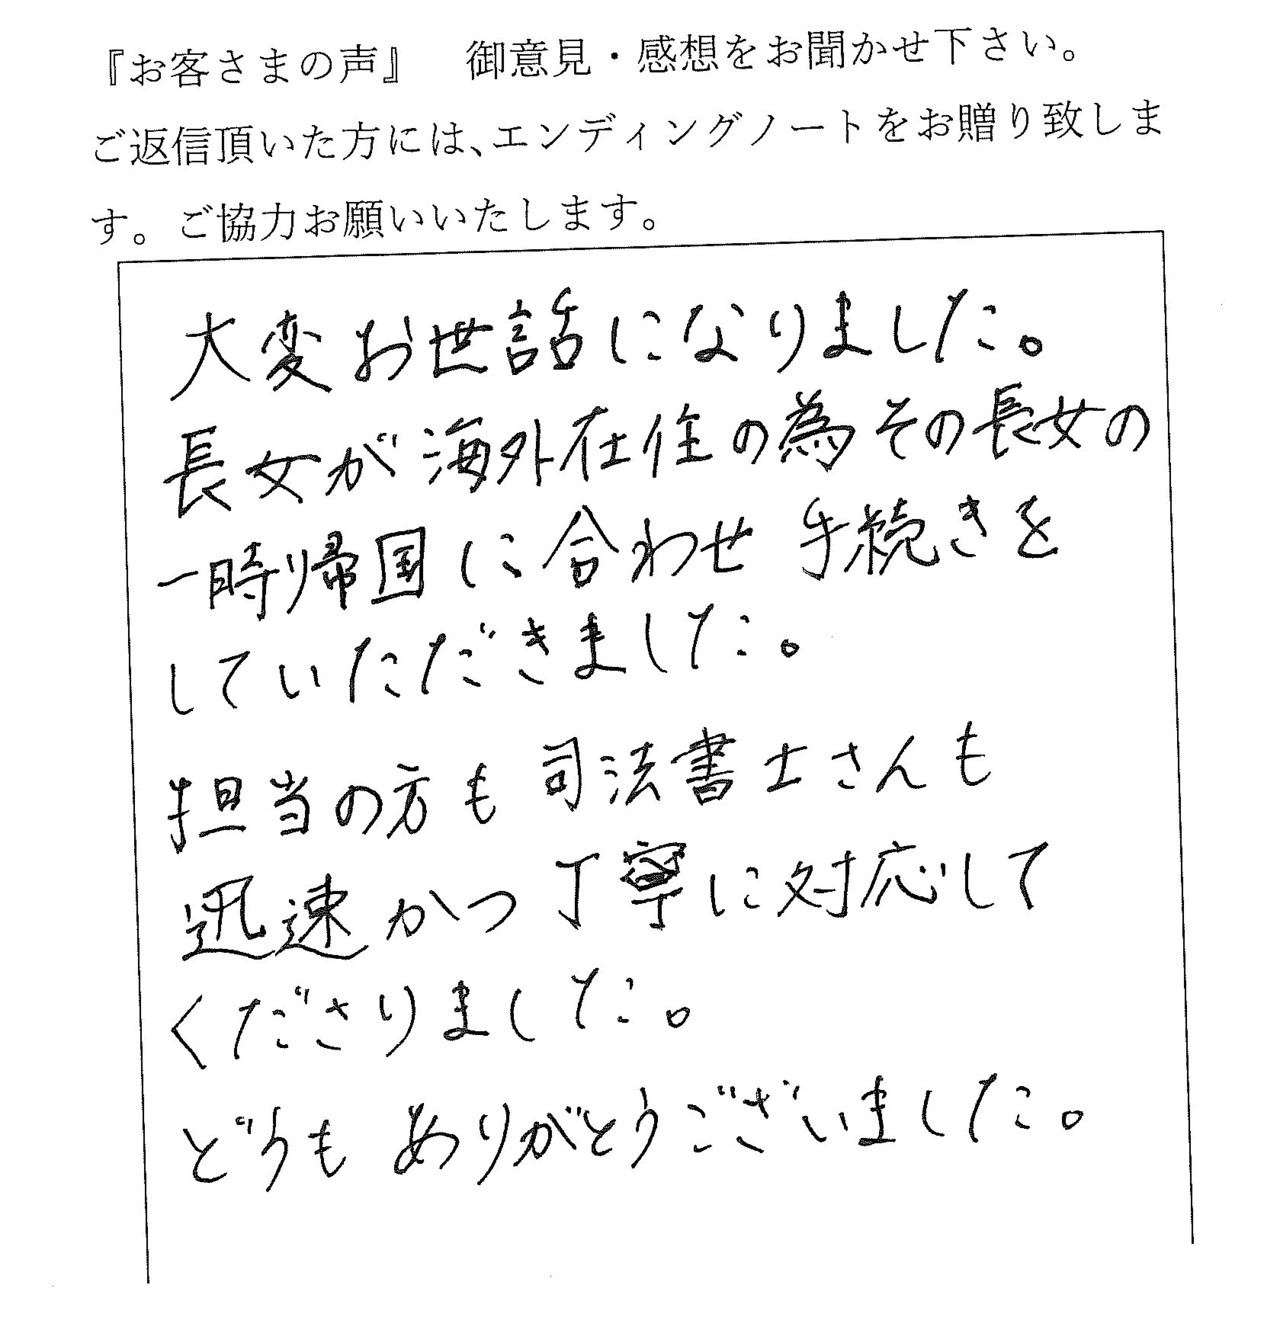 『お客さまの声』　御意見・感想をお聞かせ下さい。
ご返信頂いた方には、エンディングノートをお贈り致しま
す。ご協力お願いいたします。
大変お世話になりました。
長女が海外在住の為その長女の
一時帰国に合わせ手続きを
していただきました。
担当の方も司法書士さんも
迅速かつ丁寧に対応して
くださりました。
どうもありがとうございました。